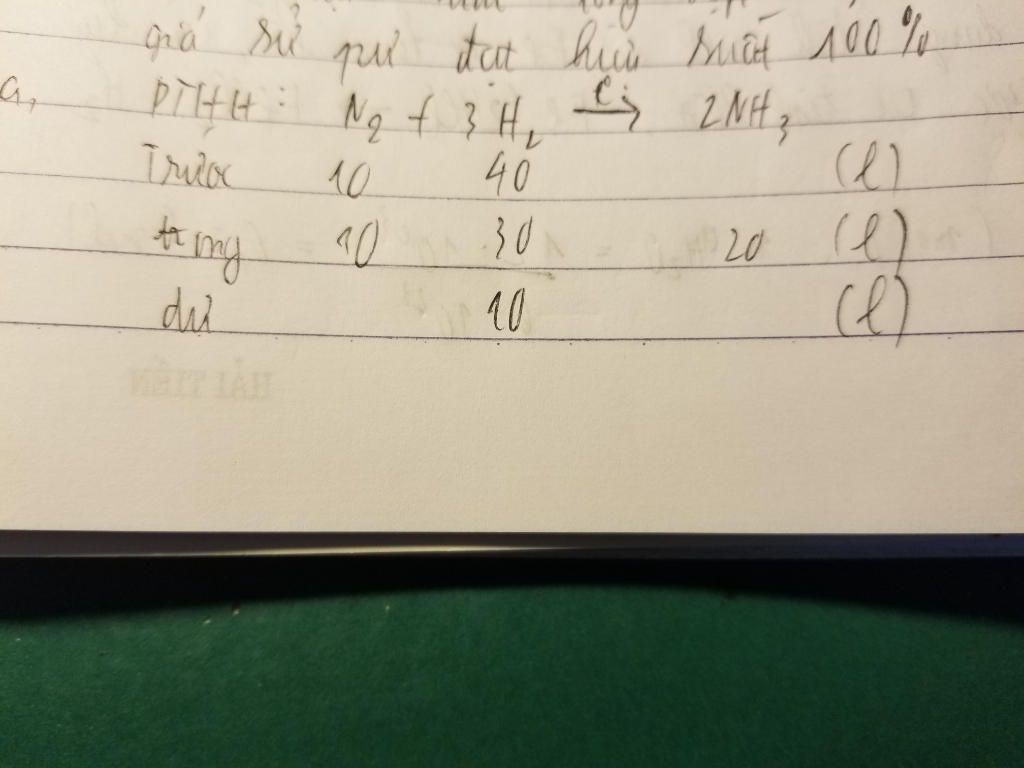 giả sử pư đạt hiệu suất 100%
a, PTHH: N₂ + 3H₂ →
 2NH₃
Trước 10 40 (l)
trong 10 30 20 (l)
dư 10 (l)
HẢI TIẾN